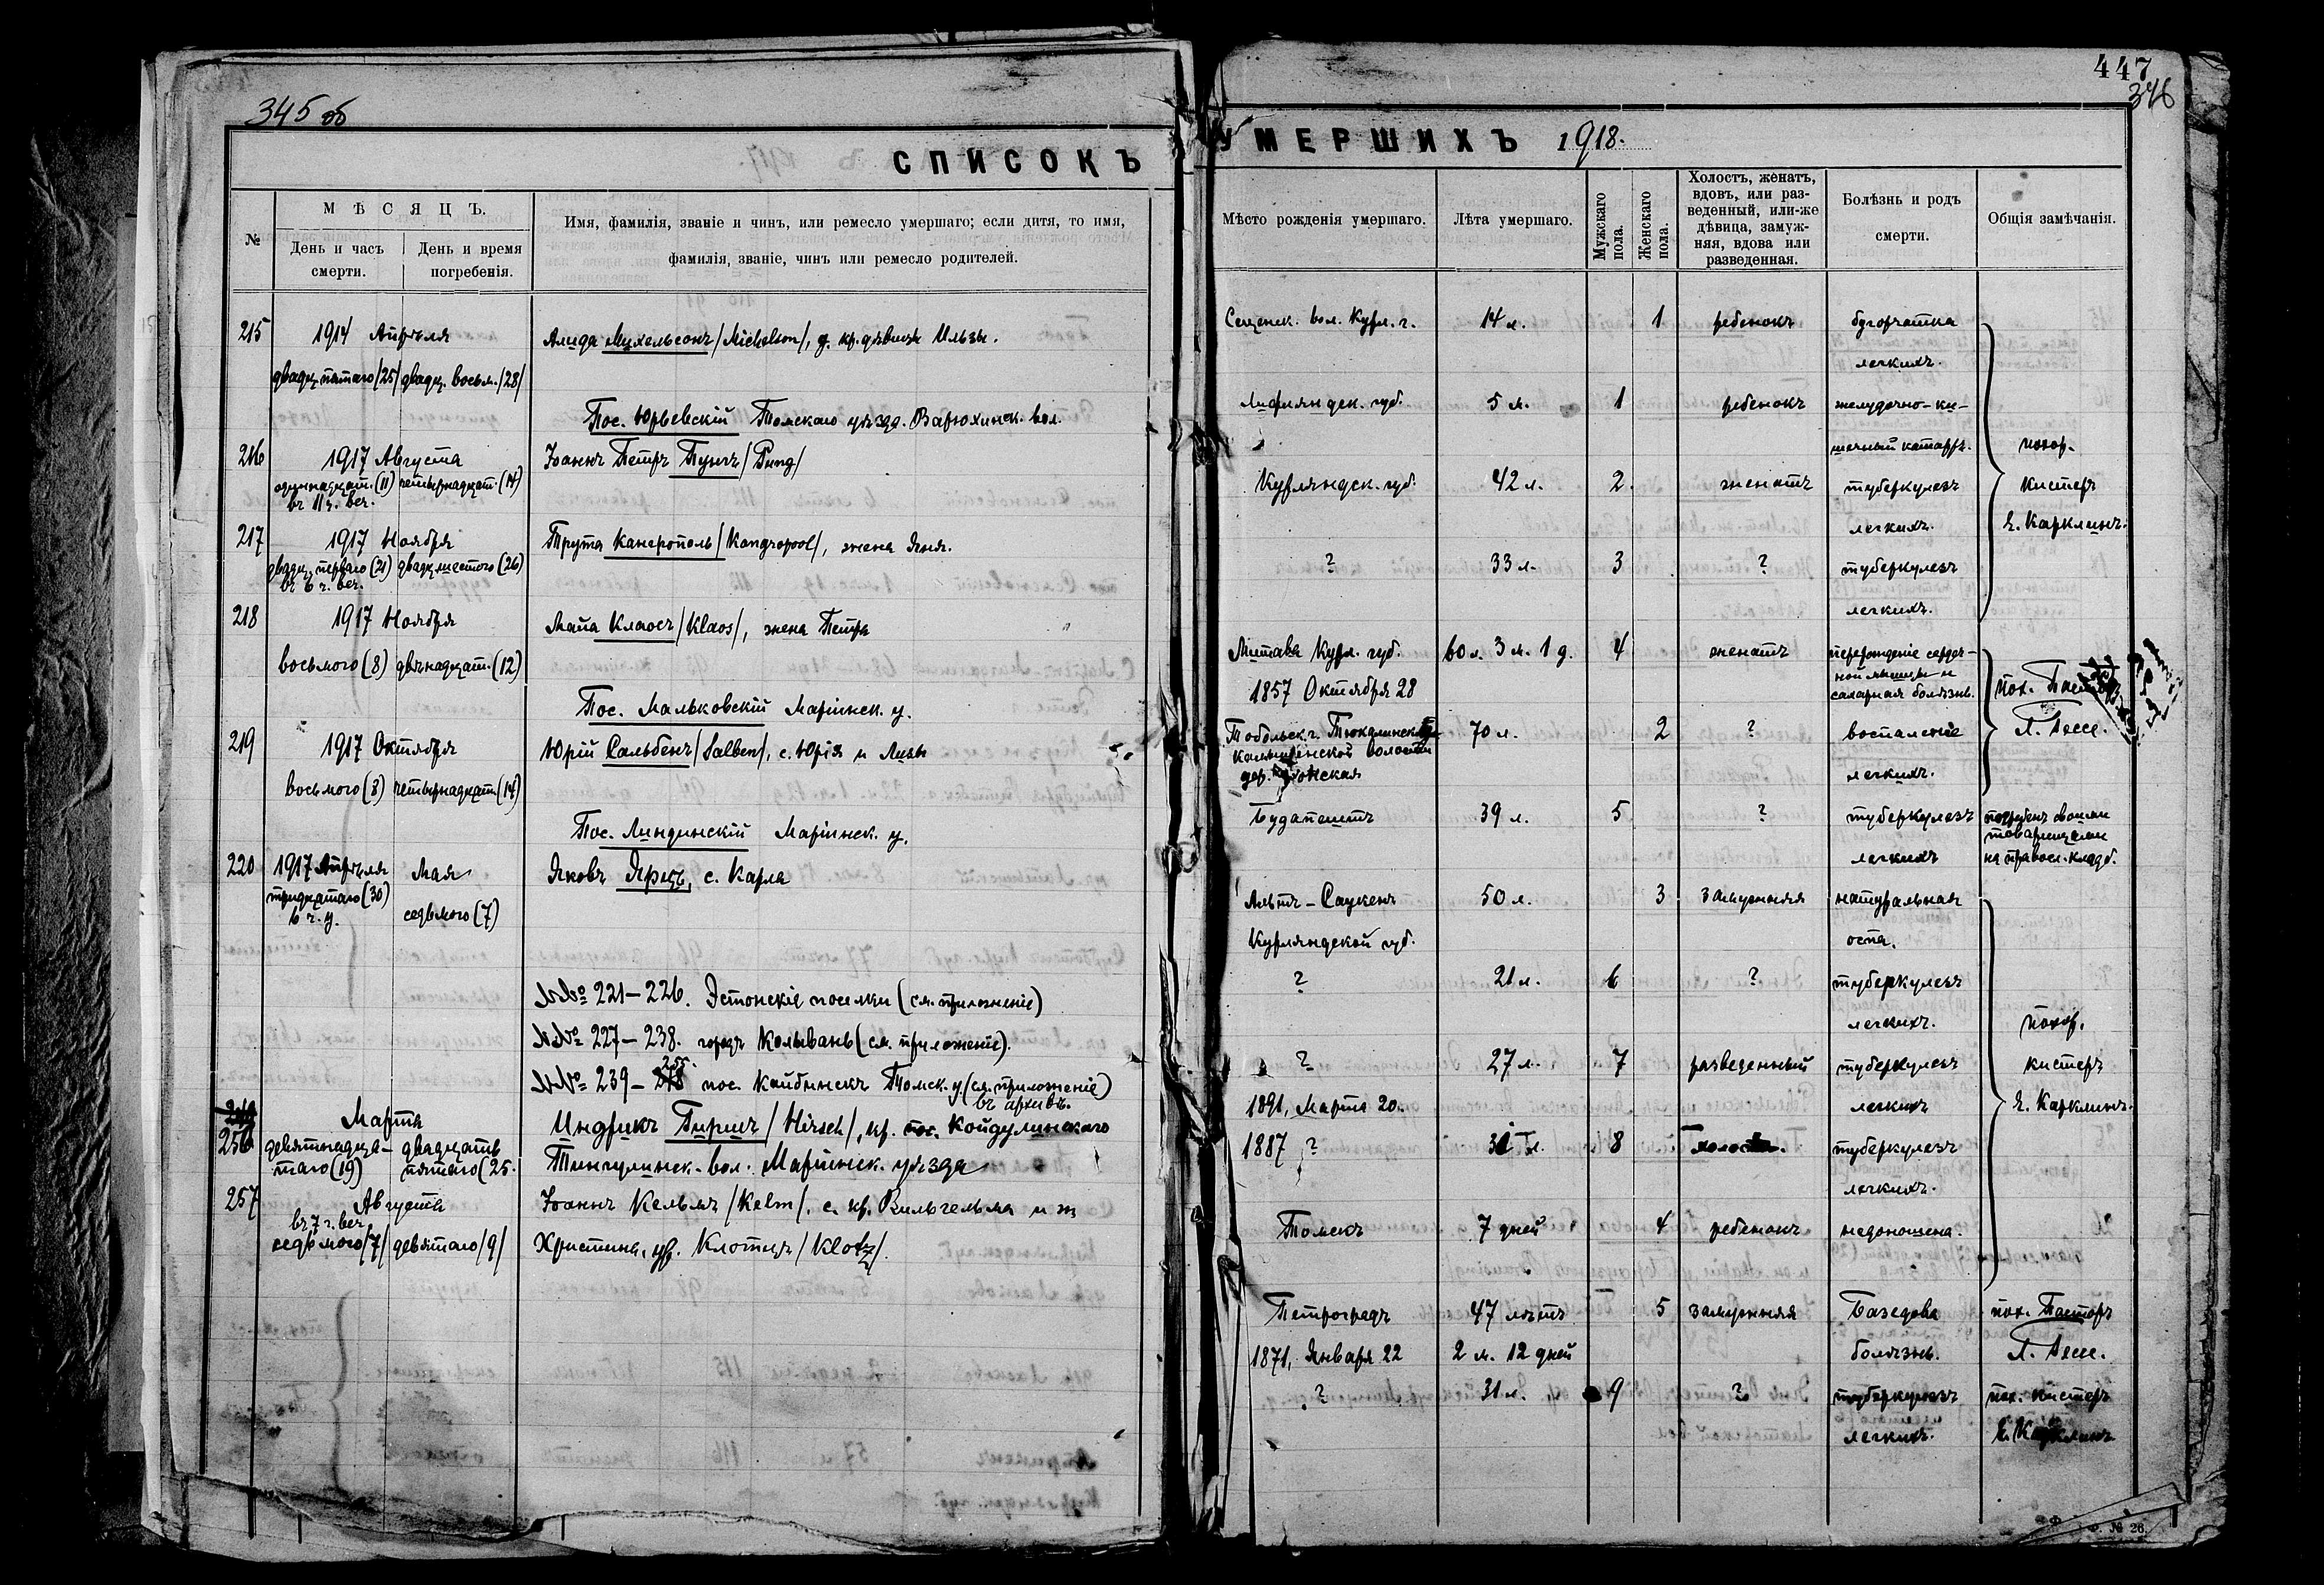 345 об
СПИСОКЪ
№
МѢСЯЦЪ.
День и часъ смерти.
День и время погребенія.
Имя, фамилія, званіе и чинъ, или ремесло умершаго; если дитя, то имя,
фамилія, званіе, чинъ или ремесло родителей.
215 1914 Апрѣля Алида Михельсонъ /Michelson/, д. кр. дѣвицы Ильзы.
двадц. пятаго /25/ двадц. восьм. /28/
Пос. Юрьевскій Томскаго уѣзда. Варюхинск. вол.
216 1917 Августа Іоаннъ Петръ Пунгъ /Pung/
одиннадцат. (11) четырнадцат. (14)
въ 11 ч. веч.
217 1917 Ноября Трута Кангрополь /Kangropool/, жена Яня.
двадц. перваго (21) двадц. шестого (26)
въ 6 ч. веч.
218 1917 Ноября Майа Клаосъ /Klaos/, жена Петра
восьмого (8) двѣнадцат. (12)
Пос. Мальковскій Маріинск. у.
219 1917 Октября Юрій Сальбенъ /Salben/, с. Юрія и Лизы
восьмого (8) четырнадцат. (14)
Пос. Линдинскій Маріинск. у.
220 1917 Апрѣля Мая Яковъ с. Карла
тридцатаго (30)
6 ч. у. седьмого (7)
№№ 221–226. Эстонскіе поселки (см. приложеніе)
№№ 227–238. городъ Колывань (см. приложеніе).
№№ 239–255. пос. Кайбинскъ Томск. у. (см. приложеніе)
въ архивѣ.
256 Марта Индрикъ Гиршъ /Hirsch/, кр. пос. Койдулинскаго
девятнадца- двадцать
таго (19) пятаго (25. Тингулинск. вол. Маріинск. уѣзда
257 Августа Іоаннъ Кельмъ /Kelm/, с. кр. Вильгельма и ж
въ 7 ч. веч.
седьмого /7/ девятаго /9/ Христина, ур. Клотцъ /Klotz/.
447
346
УМЕРШИХЪ 1918.
Мѣсто рожденія умершаго.
Лѣта умершаго.
Мужскаго пола.
Женскаго пола.
Холостъ, женатъ,
вдовъ, или раз-
веденный, или-же
дѣвица, замуж-
няя, вдова или
разведенная.
Болѣзнь и родъ
смерти.
Общія замѣчанія.
вол. Курл. г. 14 л. 1 ребенокъ бугорчатка
легкихъ.
Лифляндск. губ. 5 м. 1 ребенокъ желудочно-ки-
шечный катарръ. похор.
Курляндск. губ. 42 л. 2. женатъ туберкулезъ кистеръ
легкихъ. Я. Карклинъ.
? 33 л. 3 ? туберкулезъ
легкихъ.
Митава Курл. губ. 60 л. 3 м. 1 д. 4 женатъ перерожденіе сердеч-
ной мышцы и
1857 Октября 28 сахарная болѣзнь. пох.
Тобольск. г. 70 л. 2 ? воспаленіе
волости
дер. легкихъ.
Будапештъ 39 л. 5 ? туберкулезъ погребенъ своими
товарищами
легкихъ на правосл. кладб.
Альтъ-Саукенъ 50 л. 3 замужняя натуральная
Курляндской губ. оспа.
? 21 л. 6 ? туберкулезъ
легкихъ. похор.
? 27 л. 7 разведенный туберкулезъ кистеръ
1891, Марта 20. легкихъ Я. Карклинъ.
1887 ? 31 л. 8 холостъ. туберкулезъ
легкихъ.
Томскъ 7 дней 4 ребенокъ недоношена.
Петроградъ 47 лѣтъ 5 замужняя Базедова пох. Пасторъ
1871, Января 22 2 м. 12 дней болѣзнь.
? 31 л. 9 ? туберкулезъ пох. кистеръ
легкихъ. Я. Карклинъ
Ф. № 26.